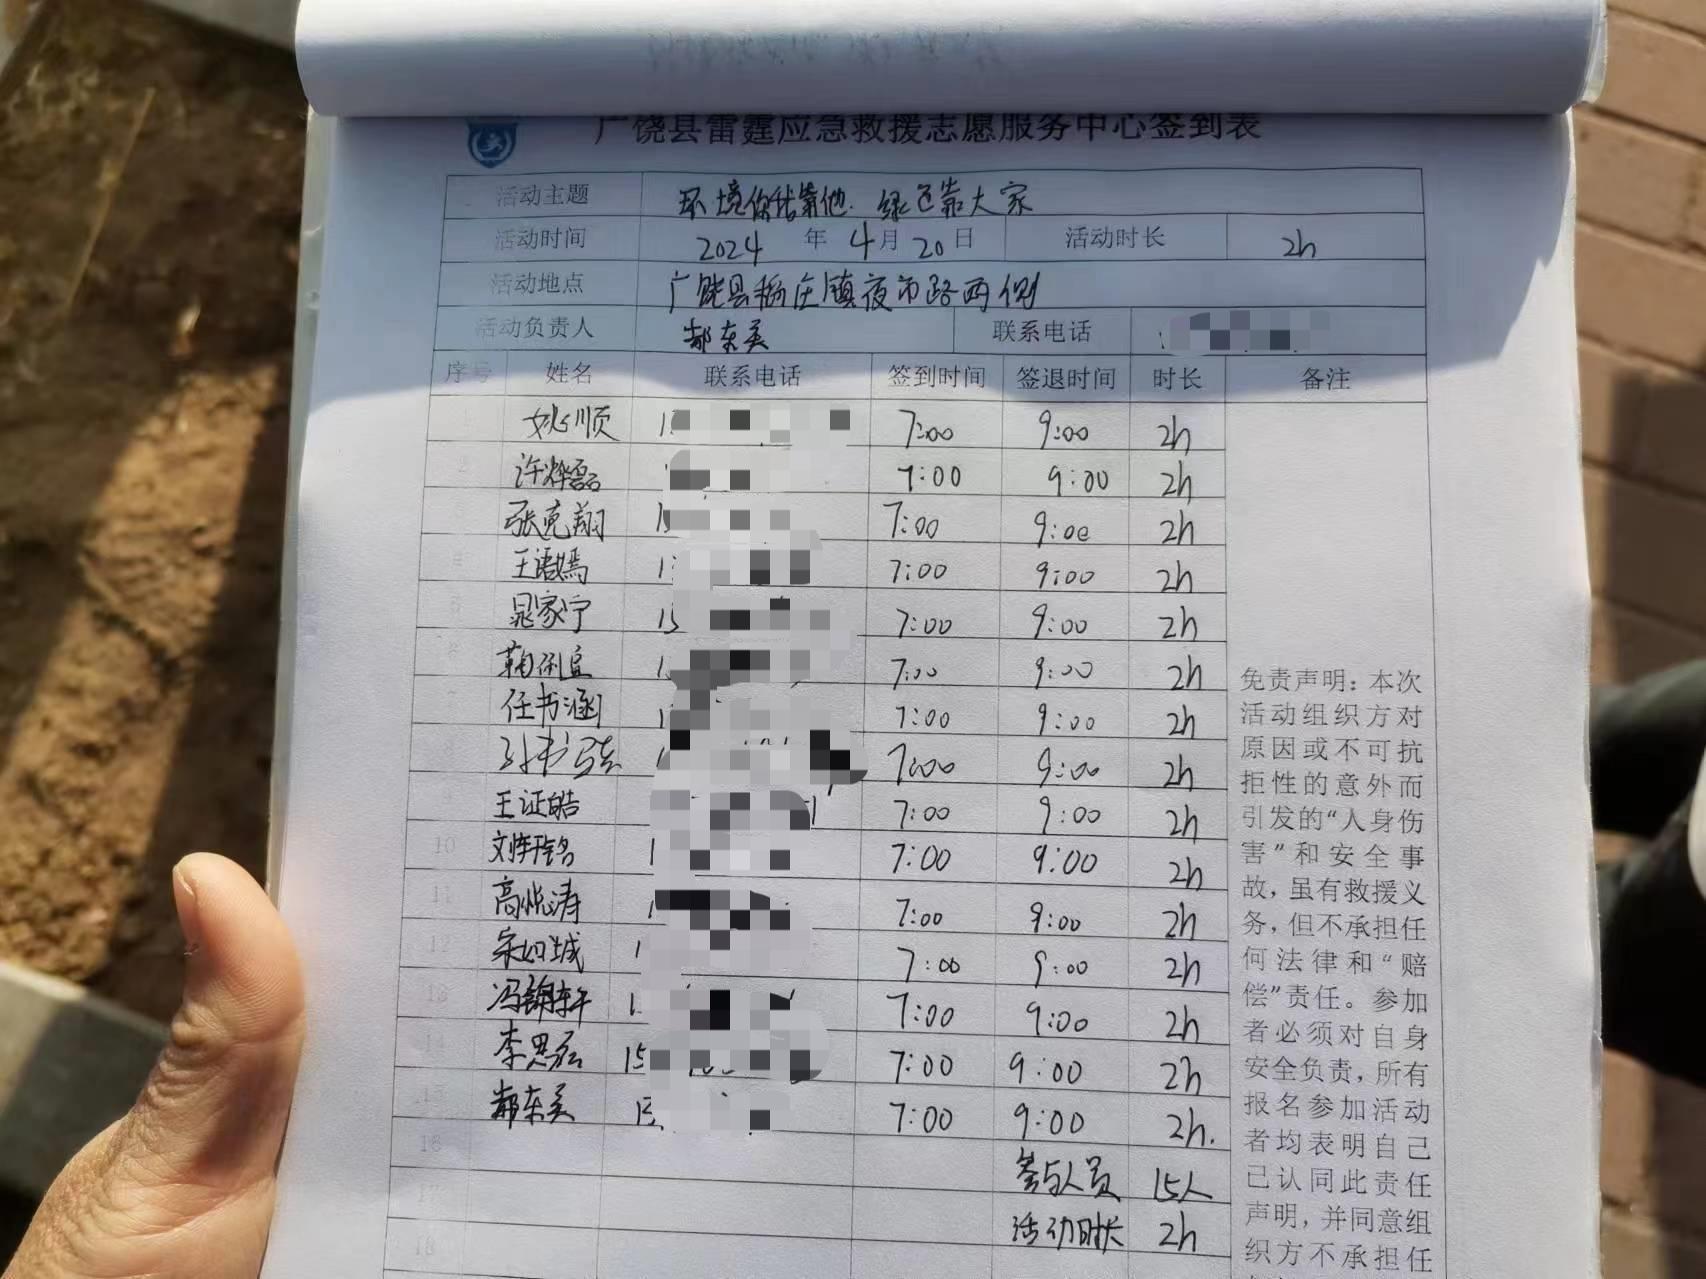 广饶县雷霆应急救援志愿服务中心签到表
活动主题 环境你我靠他 绿色靠大家
活动时间 2024 年 4 月 20 日 活动时长 2h
活动地点 广饶县稻庄镇夜市路两侧
活动负责人 郝东美 联系电话
序号 姓名 联系电话 签到时间 签退时间 时长 备注
1 姚顺 7:00 9:00 2h
2 许烨磊 7:00 9:00 2h
3 张克翔 7:00 9:00 2h
4 王语嫣 7:00 9:00 2h
5 晁家宁 15 7:00 9:00 2h
6 7:00 9:00 2h
7 任书涵 7:00 9:00 2h
8 7:00 9:00 2h
9 王证皓 7:00 9:00 2h
10 7:00 9:00 2h
11 高悦涛 7:00 9:00 2h
12 宋如城 7:00 9:00 2h
13 冯翰轩 7:00 9:00 2h
14 李思 15 7:00 9:00 2h
15 郝东美 7:00 9:00 2h.
16 参与人员 15人
17 活动时长 2h
18
免责声明：本次
活动组织方对
原因或不可抗
拒性的意外而
引发的“人身伤
害”和安全事
故，虽有救援义
务，但不承担任
何法律和“赔
偿”责任。参加
者必须对自身
安全负责，所有
报名参加活动
者均表明自己
已认同此责任
声明，并同意组
织方不承担任